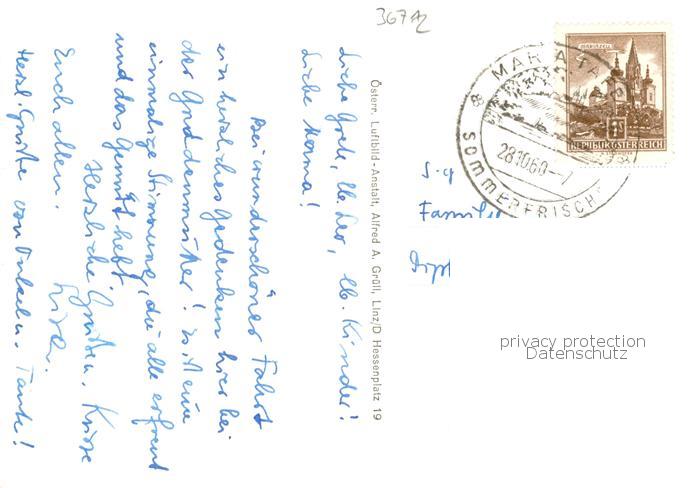 3671
Liebe Grete, lb. Leo, lb. Kinder!
Liebe Mama!
Bei wunderschöner Fahrt
ein herzliches Gedenken hier bei
der Gnadenmutter! Es ist eine
einmalige Stimmung, die alle erfreut
und das Gemüt hebt.
Herzliche Grüße, Küsse
Euch allen.
Herzl. Grüße von Onkel u. Tante!
Österr. Luftbild-Anstalt, Alfred A. Gröll, Linz/D Hessenplatz 19
MARIAZELL
1 S
REPUBLIK ÖSTERREICH
MARIA TA
28.10.60-7
SOMMERFRISCH
Familie
Dipl
privacy protection
Datenschutz